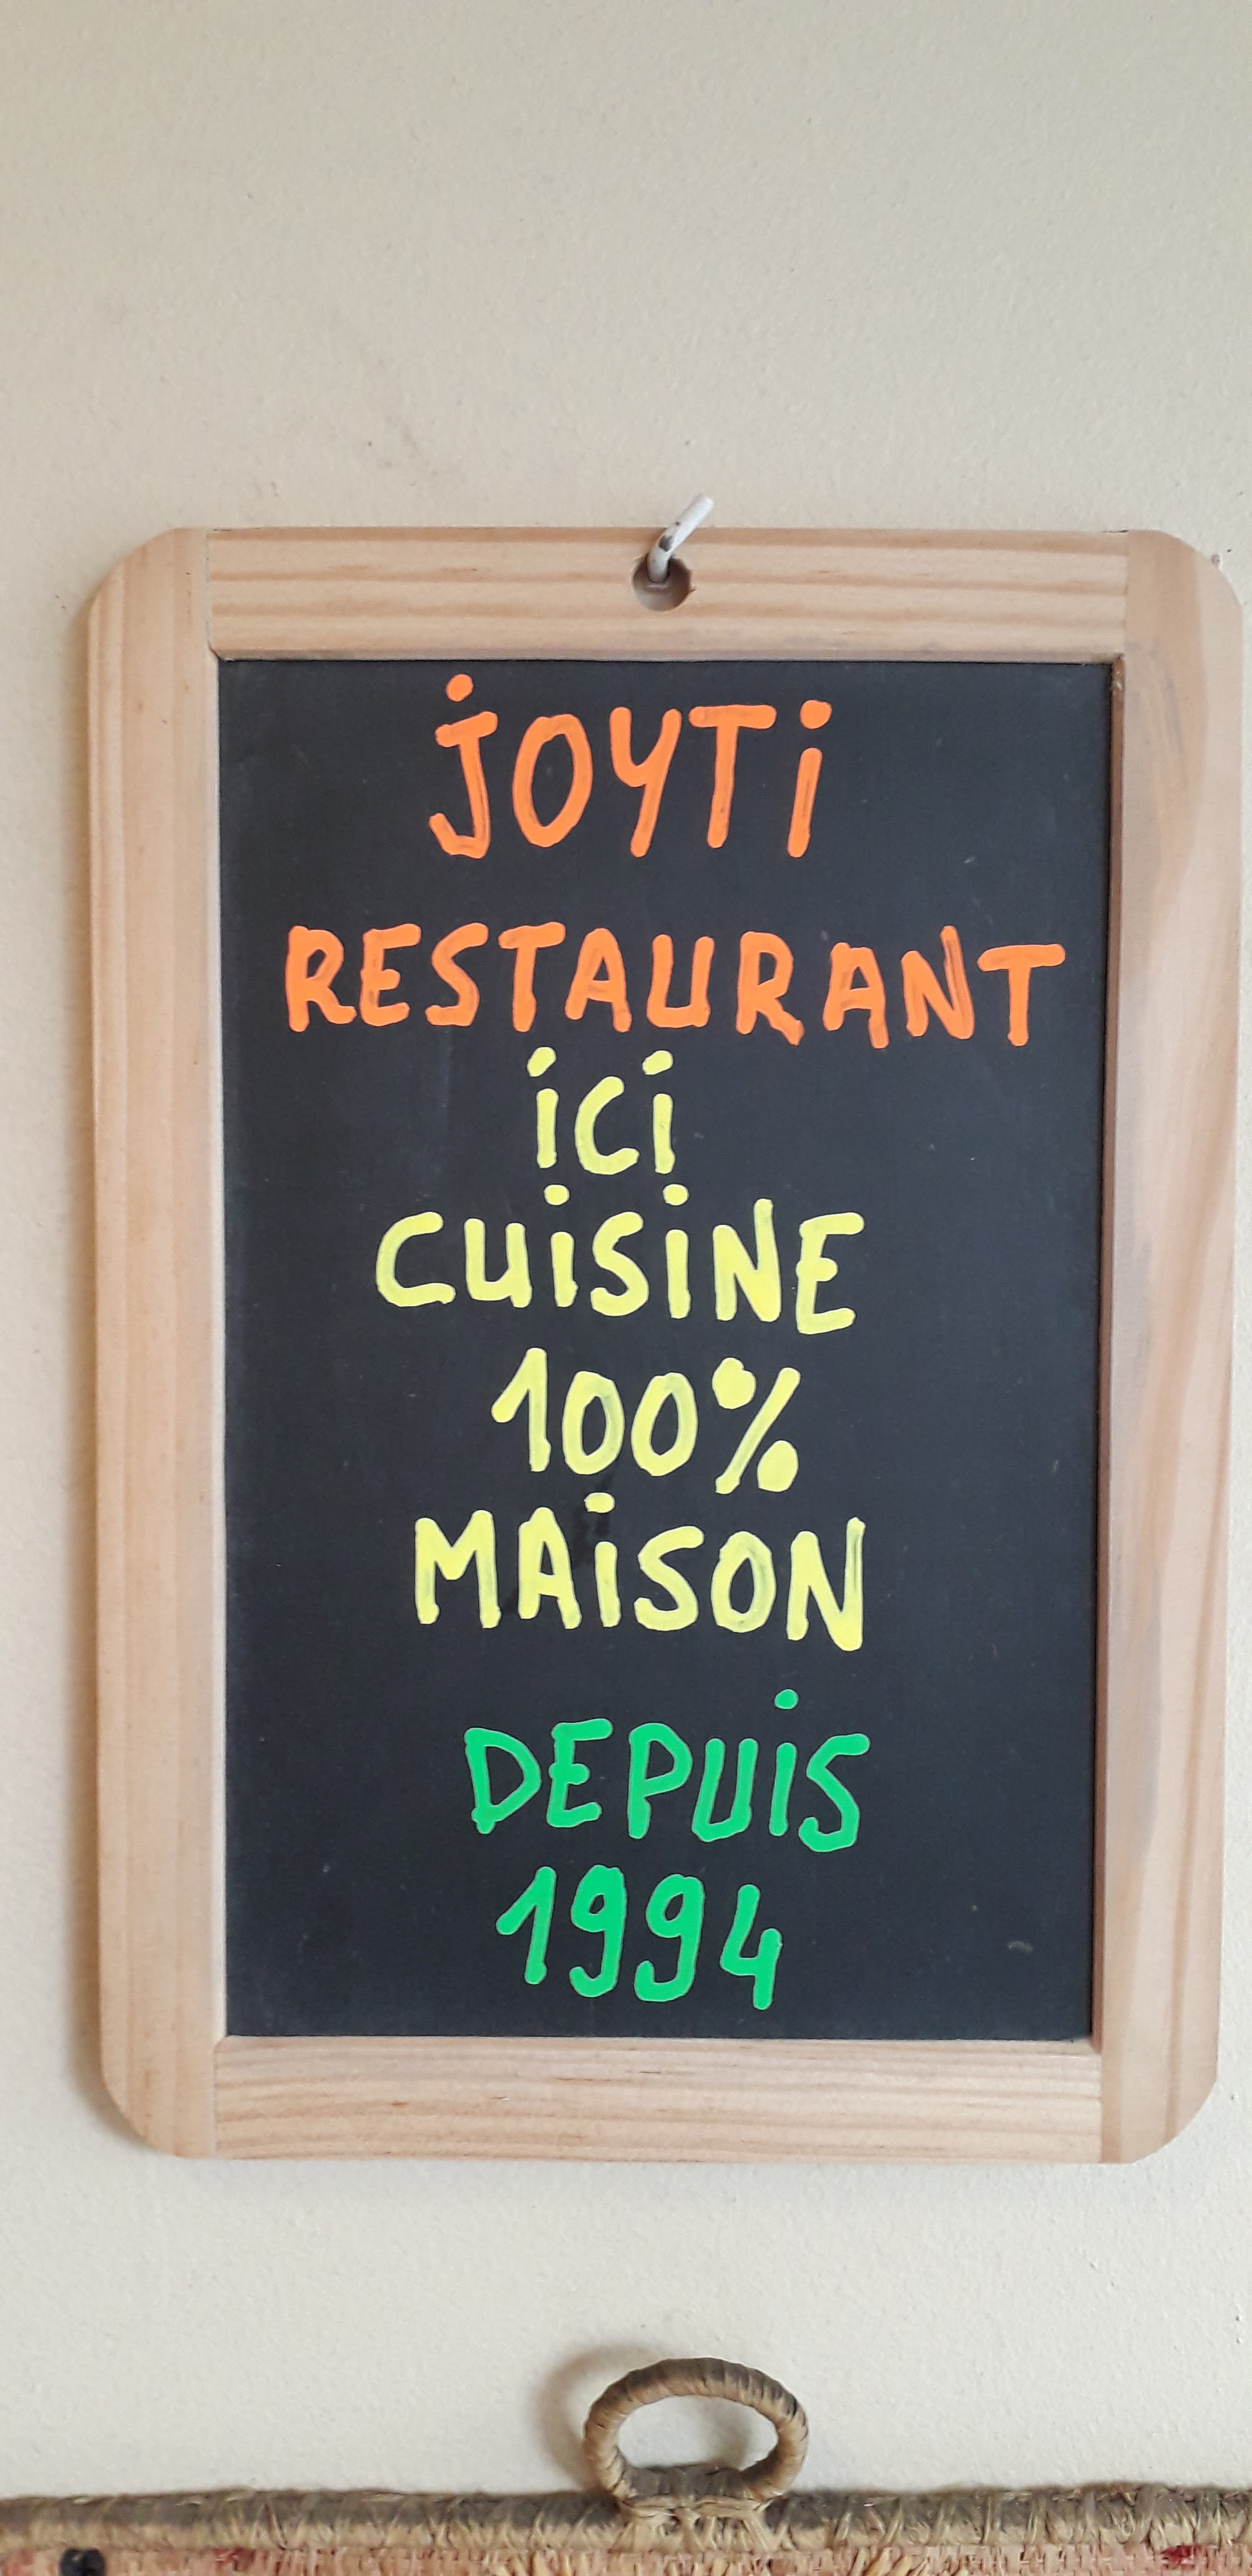 JOYTi
RESTAURANT
iCi
CUiSiNE
100%
MAiSON
DEPUiS
1994